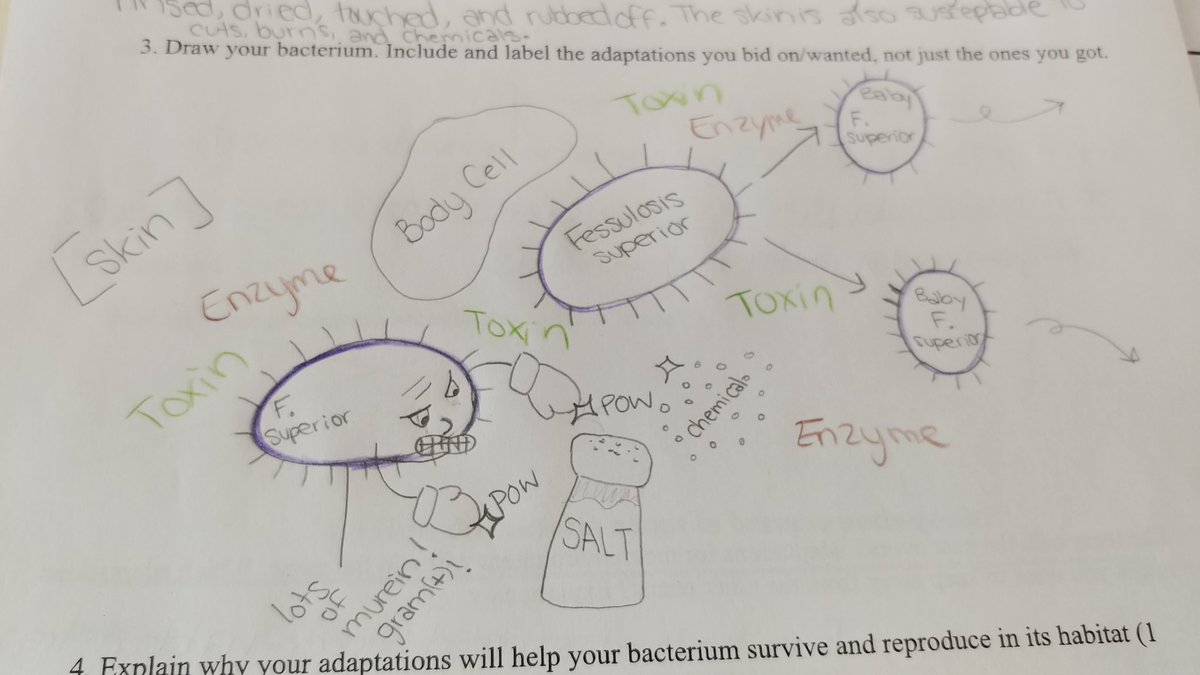 rinsed, dried, touched, and rubbed off. The skin is also susteptable to
cuts, burns, and chemicals.
3. Draw your bacterium. Include and label the adaptations you bid on/wanted, not just the ones you got.
[Skin]
Body Cell
Toxin
Enzyme
Baby
F.
superior
Fessulosis
superior
Enzyme
Toxin
Toxin
Baby
F.
superior
Toxin
F.
superior
POW
chemicals
Enzyme
POW
SALT
lots
of
murein!
gram(+)!
4. Explain why your adaptations will help your bacterium survive and reproduce in its habitat (1